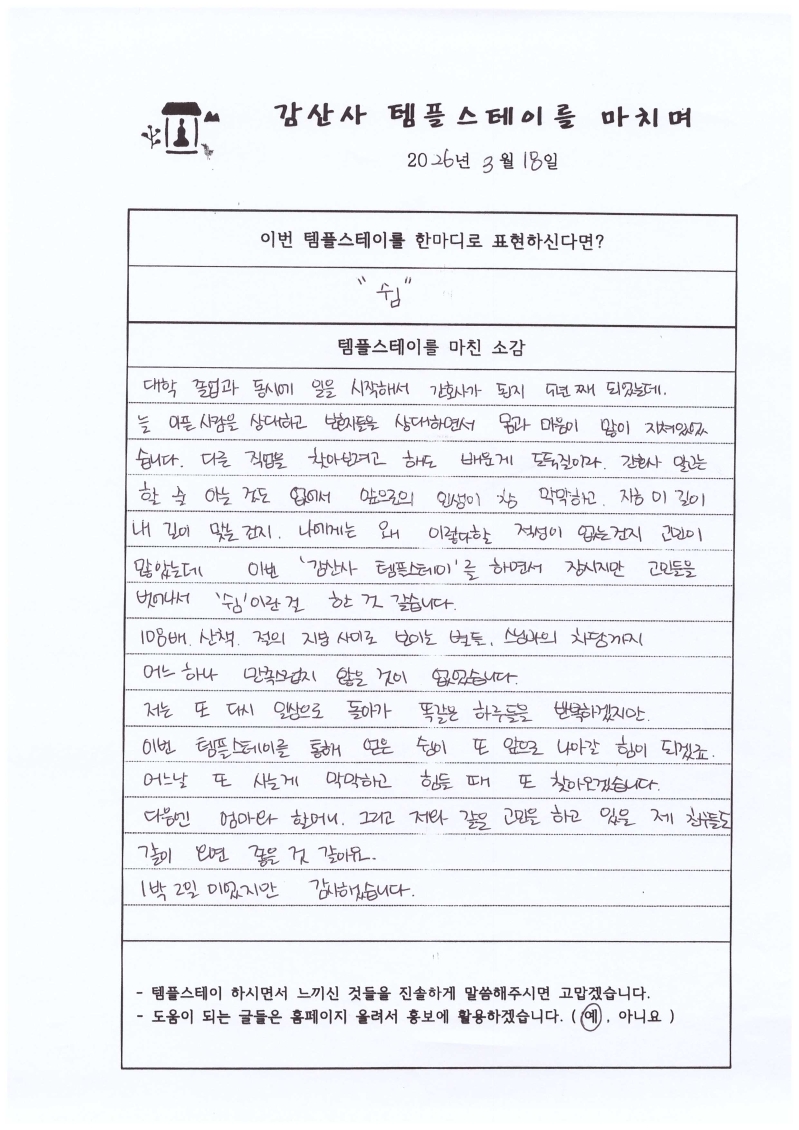 감산사 템플스테이를 마치며
2026년 3월 18일
이번 템플스테이를 한마디로 표현하신다면?
"쉼"
템플스테이를 마친 소감
대학 졸업과 동시에 일을 시작해서 간호사가 된지 5년 째 되었는데.
늘 아픈 사람을 상대하고 보호자들을 상대하면서 몸과 마음이 많이 지쳐있었
습니다. 다른 직업을 찾아보려고 해도 배운게 도둑질이라. 간호사 말고는
할 줄 아는 것도 없어서 앞으로의 인생이 참 막막하고. 지금 이 길이
내 길이 맞는건지. 나에게는 왜 이렇다할 적성이 없는건지 고민이
많았는데 이번 '감산사 템플스테이'를 하면서 잠시지만 고민들을
벗어나서 '쉼'이란걸 한 것 같습니다.
108배. 산책. 절의 지붕 사이로 보이는 별들. 스님과의 차담까지
어느 하나 만족스럽지 않은 것이 없었습니다.
저는 또 다시 일상으로 돌아가 똑같은 하루들을 반복하겠지만.
이번 템플스테이를 통해 얻은 쉼이 또 앞으로 나아갈 힘이 되겠죠.
어느날 또 사는게 막막하고 힘들 때 또 찾아오겠습니다.
다음엔 엄마와 할머니. 그리고 저와 같은 고민을 하고 있을 제 친구들도
같이 오면 좋을 것 같아요.
1박 2일 이었지만 감사했습니다.
- 템플스테이 하시면서 느끼신 것들을 진솔하게 말씀해주시면 고맙겠습니다.
- 도움이 되는 글들은 홈페이지 올려서 홍보에 활용하겠습니다. ( 예 , 아니요 )